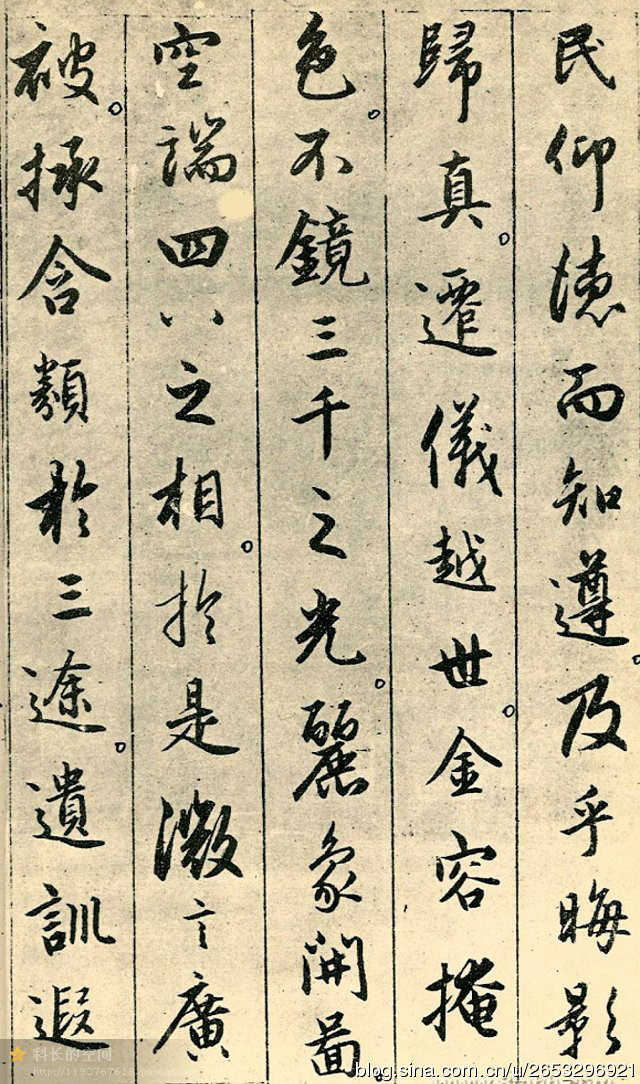 民仰德而知遵。及乎晦影
歸真。遷儀越世。金容掩
色。不鏡三千之光。麗象開圖。
空端四八之相。於是微言廣
被。拯含類於三途。遺訓遐
科长的空间
blog.sina.com.cn/u/2653296921